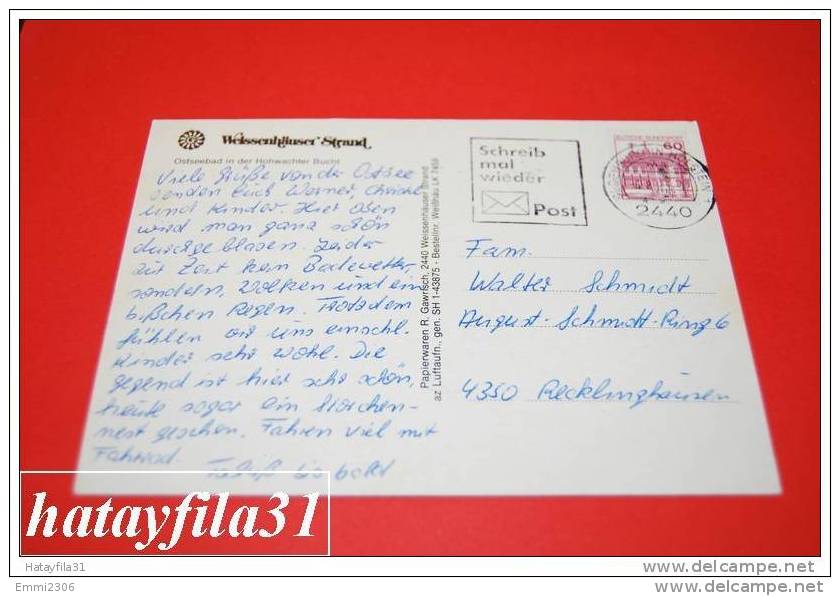 Weissenhäuser Strand
Ostseebad in der Hohwachter Bucht
Viele Grüße von der Ostsee
senden Euch Werner,
und Kinder. Hier oben
wird man ganz schön
durchgeblasen. Leider
zur Zeit kein Badewetter,
sondern, Wolken und ein
bißchen Regen. Trotzdem
fühlen wir uns einschl.
Kinder sehr wohl. Die
Gegend ist hier sehr schön,
heute sogar ein Storchen-
nest gesehen. Fahren viel mit
Fahrrad.
bis bald
Papierwaren R. Gawrisch, 2440 Weissenhäuser Strand
az Luftaufn., gen. SH 1-43875 - Bestellnr. Weißhäu LK 7459
Schreib
mal
wieder
Post
DEUTSCHE BUNDESPOST
60
2440
Fam.
Walter Schmidt
August-Schmidt-Ring 6
4350 Recklinghausen
hatayfila31
Hatayfila31
www.delcampe.net
Emmi2306
www.delcampe.net